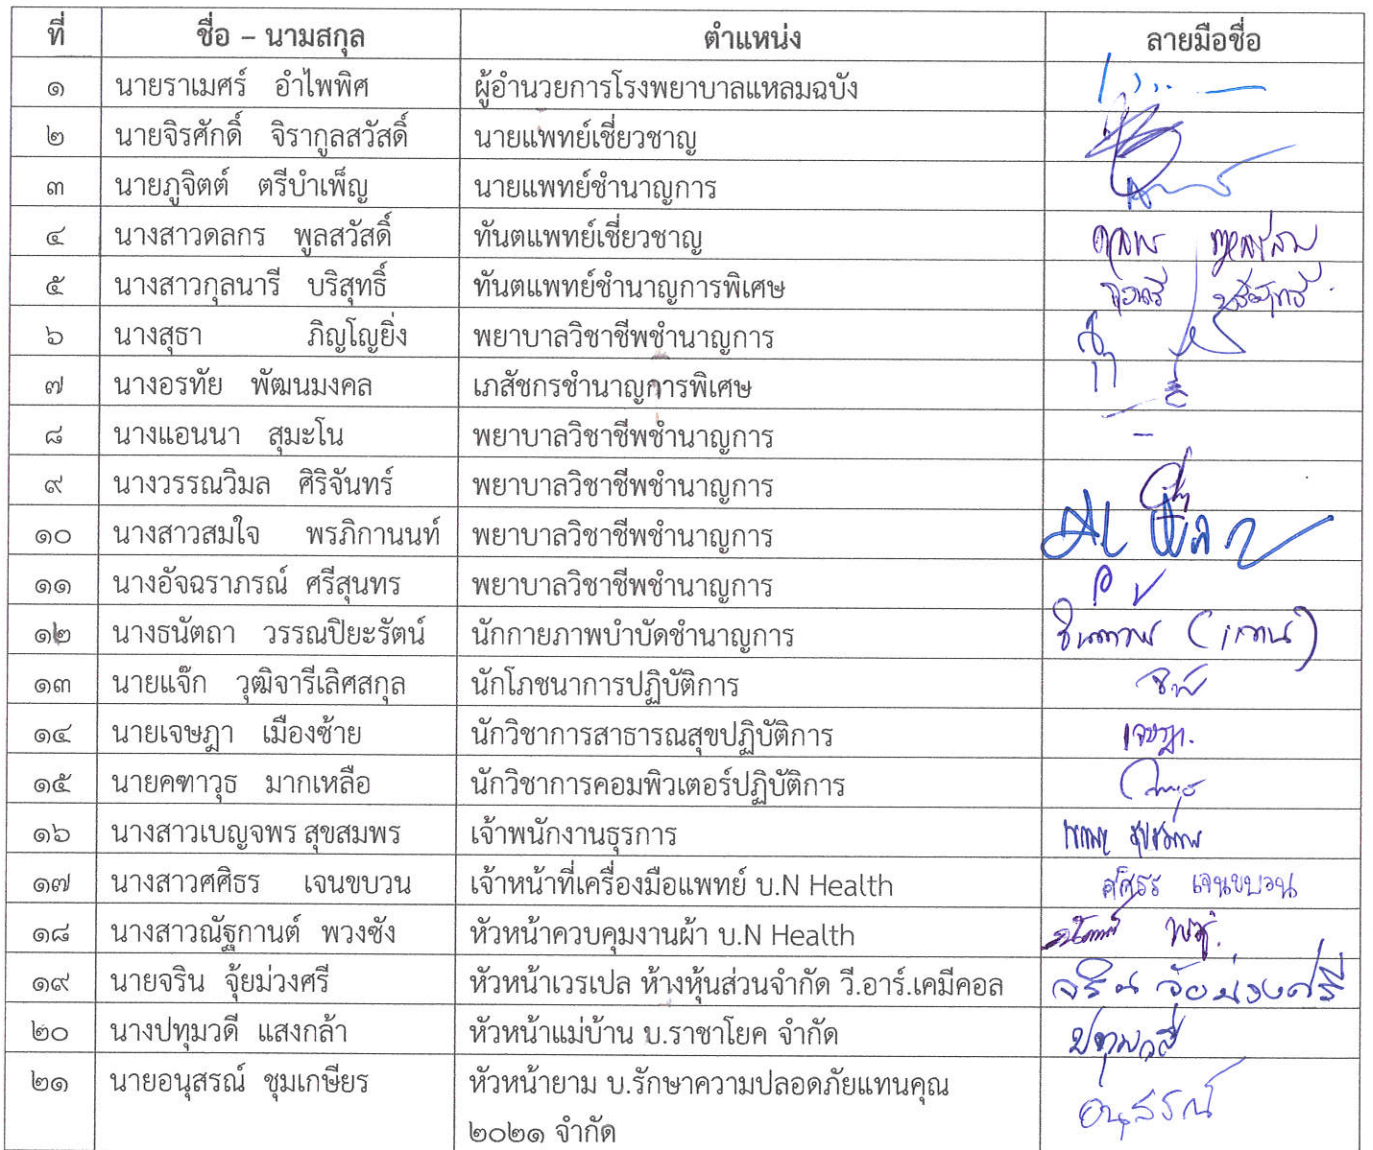 ที่ ชื่อ – นามสกุล ตำแหน่ง ลายมือชื่อ
๑ นายราเมศร์ อำไพพิศ ผู้อำนวยการโรงพยาบาลแหลมฉบัง
๒ นายจิรศักดิ์ จิรากูลสวัสดิ์ นายแพทย์เชี่ยวชาญ
๓ นายภูจิตต์ ตรีบำเพ็ญ นายแพทย์ชำนาญการ
๔ นางสาวดลกร พูลสวัสดิ์ ทันตแพทย์เชี่ยวชาญ
๕ นางสาวกุลนารี บริสุทธิ์ ทันตแพทย์ชำนาญการพิเศษ
๖ นางสุธา ภิญโญยิ่ง พยาบาลวิชาชีพชำนาญการ
๗ นางอรทัย พัฒนมงคล เภสัชกรชำนาญการพิเศษ
๘ นางแอนนา สุมะโน พยาบาลวิชาชีพชำนาญการ –
๙ นางวรรณวิมล ศิริจันทร์ พยาบาลวิชาชีพชำนาญการ
๑๐ นางสาวสมใจ พรภิกานนท์ พยาบาลวิชาชีพชำนาญการ
๑๑ นางอัจฉราภรณ์ ศรีสุนทร พยาบาลวิชาชีพชำนาญการ
๑๒ นางธนัตถา วรรณปิยะรัตน์ นักกายภาพบำบัดชำนาญการ
๑๓ นายแจ๊ก วุฒิจารีเลิศสกุล นักโภชนาการปฏิบัติการ
๑๔ นายเจษฎา เมืองซ้าย นักวิชาการสาธารณสุขปฏิบัติการ เจษฎา.
๑๕ นายคฑาวุธ มากเหลือ นักวิชาการคอมพิวเตอร์ปฏิบัติการ
๑๖ นางสาวเบญจพร สุขสมพร เจ้าพนักงานธุรการ
๑๗ นางสาวศศิธร เจนขบวน เจ้าหน้าที่เครื่องมือแพทย์ บ.N Health ศศิธร เจนขบวน
๑๘ นางสาวณัฐกานต์ พวงซัง หัวหน้าควบคุมงานผ้า บ.N Health
๑๙ นายจริน จุ้ยม่วงศรี หัวหน้าเวรเปล ห้างหุ้นส่วนจำกัด วี.อาร์.เคมีคอล จริน จุ้ยม่วงศรี
๒๐ นางปทุมวดี แสงกล้า หัวหน้าแม่บ้าน บ.ราชาโยค จำกัด ปทุมวดี
๒๑ นายอนุสรณ์ ชุมเกษียร หัวหน้ายาม บ.รักษาความปลอดภัยแทนคุณ อนุสรณ์
๒๐๒๑ จำกัด